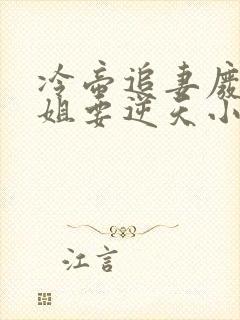 冷帝追妻废
姐要逆天小
江言